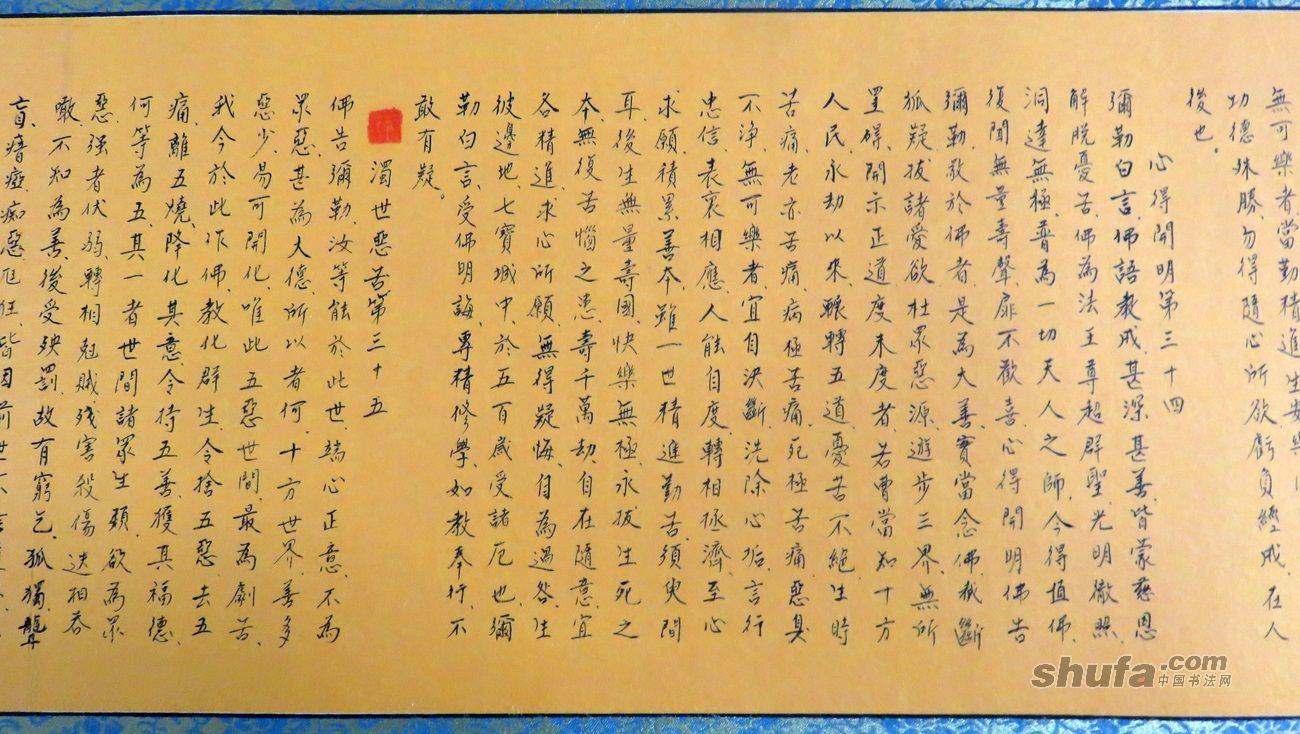 無可樂者當勤精進生安樂
功德殊勝、勿得隨心所欲虧負經戒、在人
後也。
心得開明第三十四
彌勒白言、佛語教戒、甚深甚善、皆蒙慈恩
解脫憂苦、佛為法王尊超群聖、光明徹照、
洞達無極、普為一切天人之師、今得值佛、
復聞無量壽聲、靡不歡喜、心得開明、佛告
彌勒、敬於佛者、是為大善、實當念佛、截斷
狐疑、拔諸愛欲、杜眾惡源、遊步三界、無所
罣礙、開示正道、度未度者、若曹當知十方
人民、永劫以來、輾轉五道、憂苦不絕、生時
苦痛、老亦苦痛、病極苦痛、死極苦痛、惡臭
不淨、無可樂者、宜自決斷、洗除心垢、言行
忠信、表裏相應、人能自度、轉相拯濟、至心
求願、積累善本、雖一世精進勤苦、須臾間
耳、後生無量壽國、快樂無極、永拔生死之
本、無復苦惱之患、壽千萬劫、自在隨意、宜
各精進、求心所願、無得疑悔、自為過咎、生
彼邊地、七寶城中、於五百歲受諸厄也、彌
勒白言、受佛明誨、專精修學、如教奉行、不
敢有疑。
濁世惡苦第三十五
佛告彌勒、汝等能於此世、端心正意、不為
眾惡、甚為大德、所以者何、十方世界、善多
惡少、易可開化、唯此五惡世間、最為劇苦、
我今於此作佛、教化群生、令捨五惡、去五
痛、離五燒、降化其意、令持五善、獲其福德、
何等為五、其一者、世間諸眾生類、欲為眾
惡、强者伏弱、轉相尅賊、殘害殺傷、迭相吞
噉、不知為善、後受殃罰、故有窮乞、孤獨、聾
盲、瘖瘂、痴惡、尫狂、皆因前世不
shufa.com
中国书法网